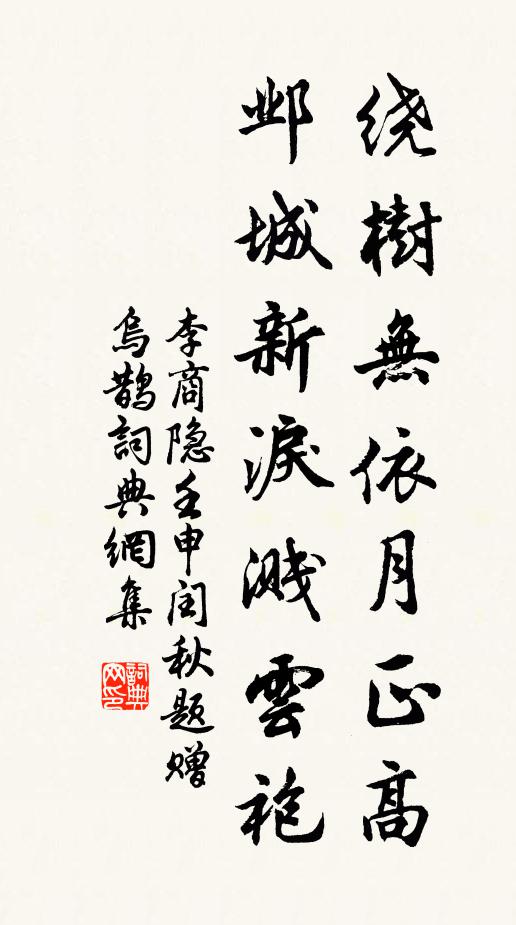 绕樹無依月正高
邺城新淚濺雲袍
李商隐壬申闰秋题赠
烏鹊詞典網集
詞典网印